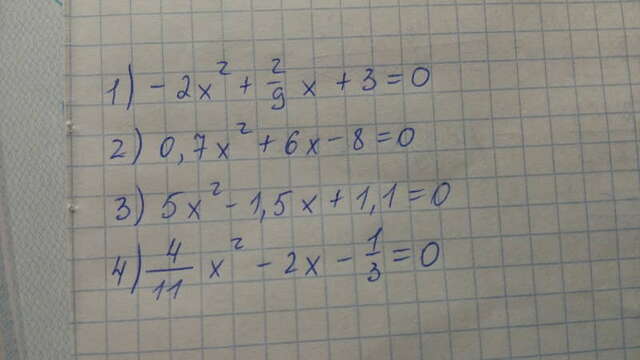 1) -2x² + 2/9 x + 3 = 0
2) 0,7x² + 6x - 8 = 0
3) 5x² - 1,5x + 1,1 = 0
4) 4/11 x² - 2x - 1/3 = 0